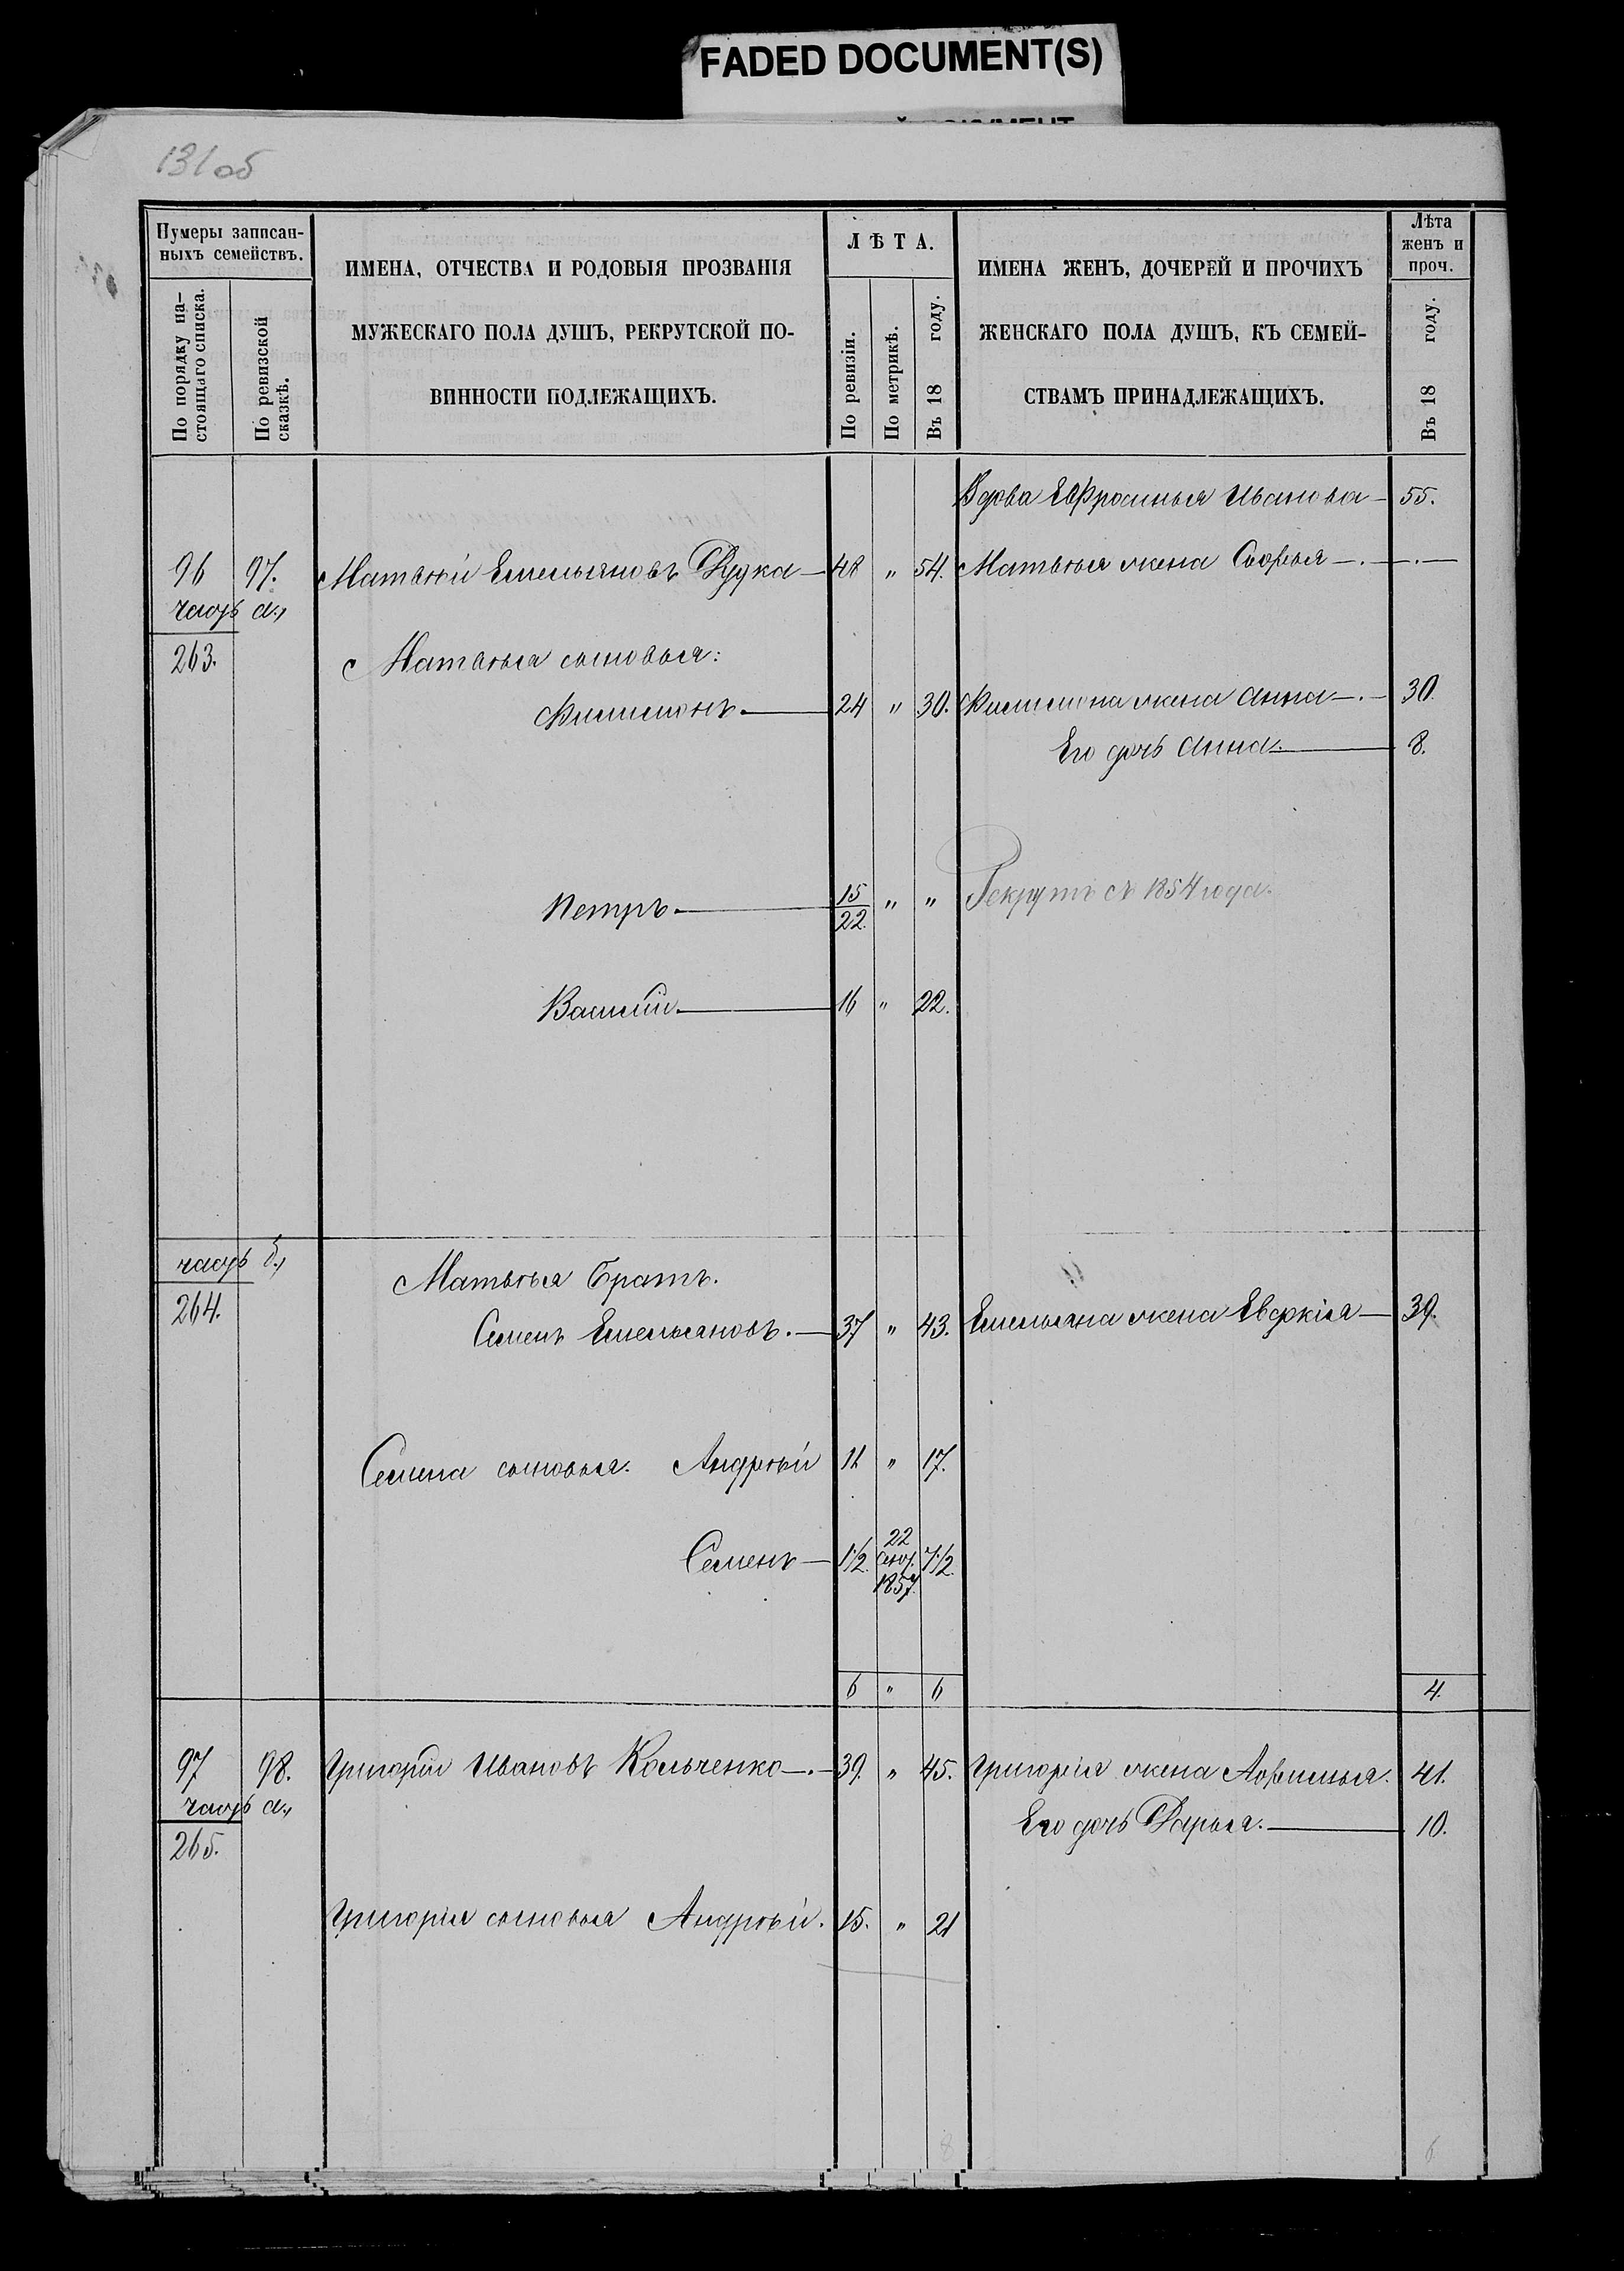 FADED DOCUMENT(S)
131 об
Нумеры записан-
ныхъ семействъ.
По порядку на-
стоящаго списка.
По ревизской
сказкѣ.
ИМЕНА, ОТЧЕСТВА И РОДОВЫЯ ПРОЗВАНІЯ
МУЖЕСКАГО ПОЛА ДУШЪ, РЕКРУТСКОЙ ПО-
ВИННОСТИ ПОДЛЕЖАЩИХЪ.
ЛѢТА.
По ревизіи.
По метрикѣ.
Въ 18 году.
ИМЕНА ЖЕНЪ, ДОЧЕРЕЙ И ПРОЧИХЪ
ЖЕНСКАГО ПОЛА ДУШЪ, КЪ СЕМЕЙ-
СТВАМЪ ПРИНАДЛЕЖАЩИХЪ.
Лѣта
женъ и
проч.
Въ 18 году.
Вдова Ефросинья Иванова — 55.
96 97. Матвѣй Емельяновъ Дудка — 48 " 54. Матвѣя жена Софья — . — . —
часть а.,
263. Матвѣя сыновья:
Филимонъ. — 24 " 30. Филимона жена Анна — . — 30.
Его дочь Анна. — 8.
Петръ. — 15/22. " " Рекрутъ съ 1854 года.
Василій. — 16 " 22.
часть б.,
264. Матвѣя братъ.
Семенъ Емельяновъ. — 37 " 43. Емельяна жена Евдокія — 39.
Семена сыновья. Андрѣй 11 " 17.
Семенъ — 1½. 22 1857. 7½.
6 " 6 4.
97 98. Григорій Ивановъ Кольченко — . — 39. " 45. Григорія жена Афимья. 41.
часть а.,
265. Его дочь Дарья. — 10.
Григорія сыновья Андрѣй. 15. " 21
8 6